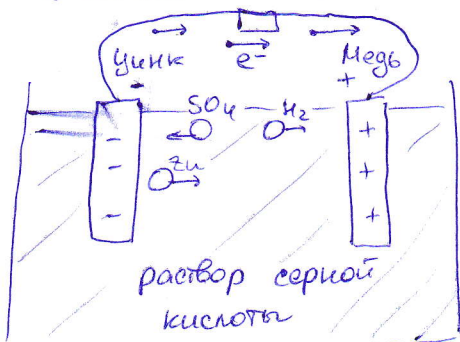 Цинк e⁻ Медь
- +
SO₄ H₂
- +
- Zn +
- +
раствор серной
кислоты